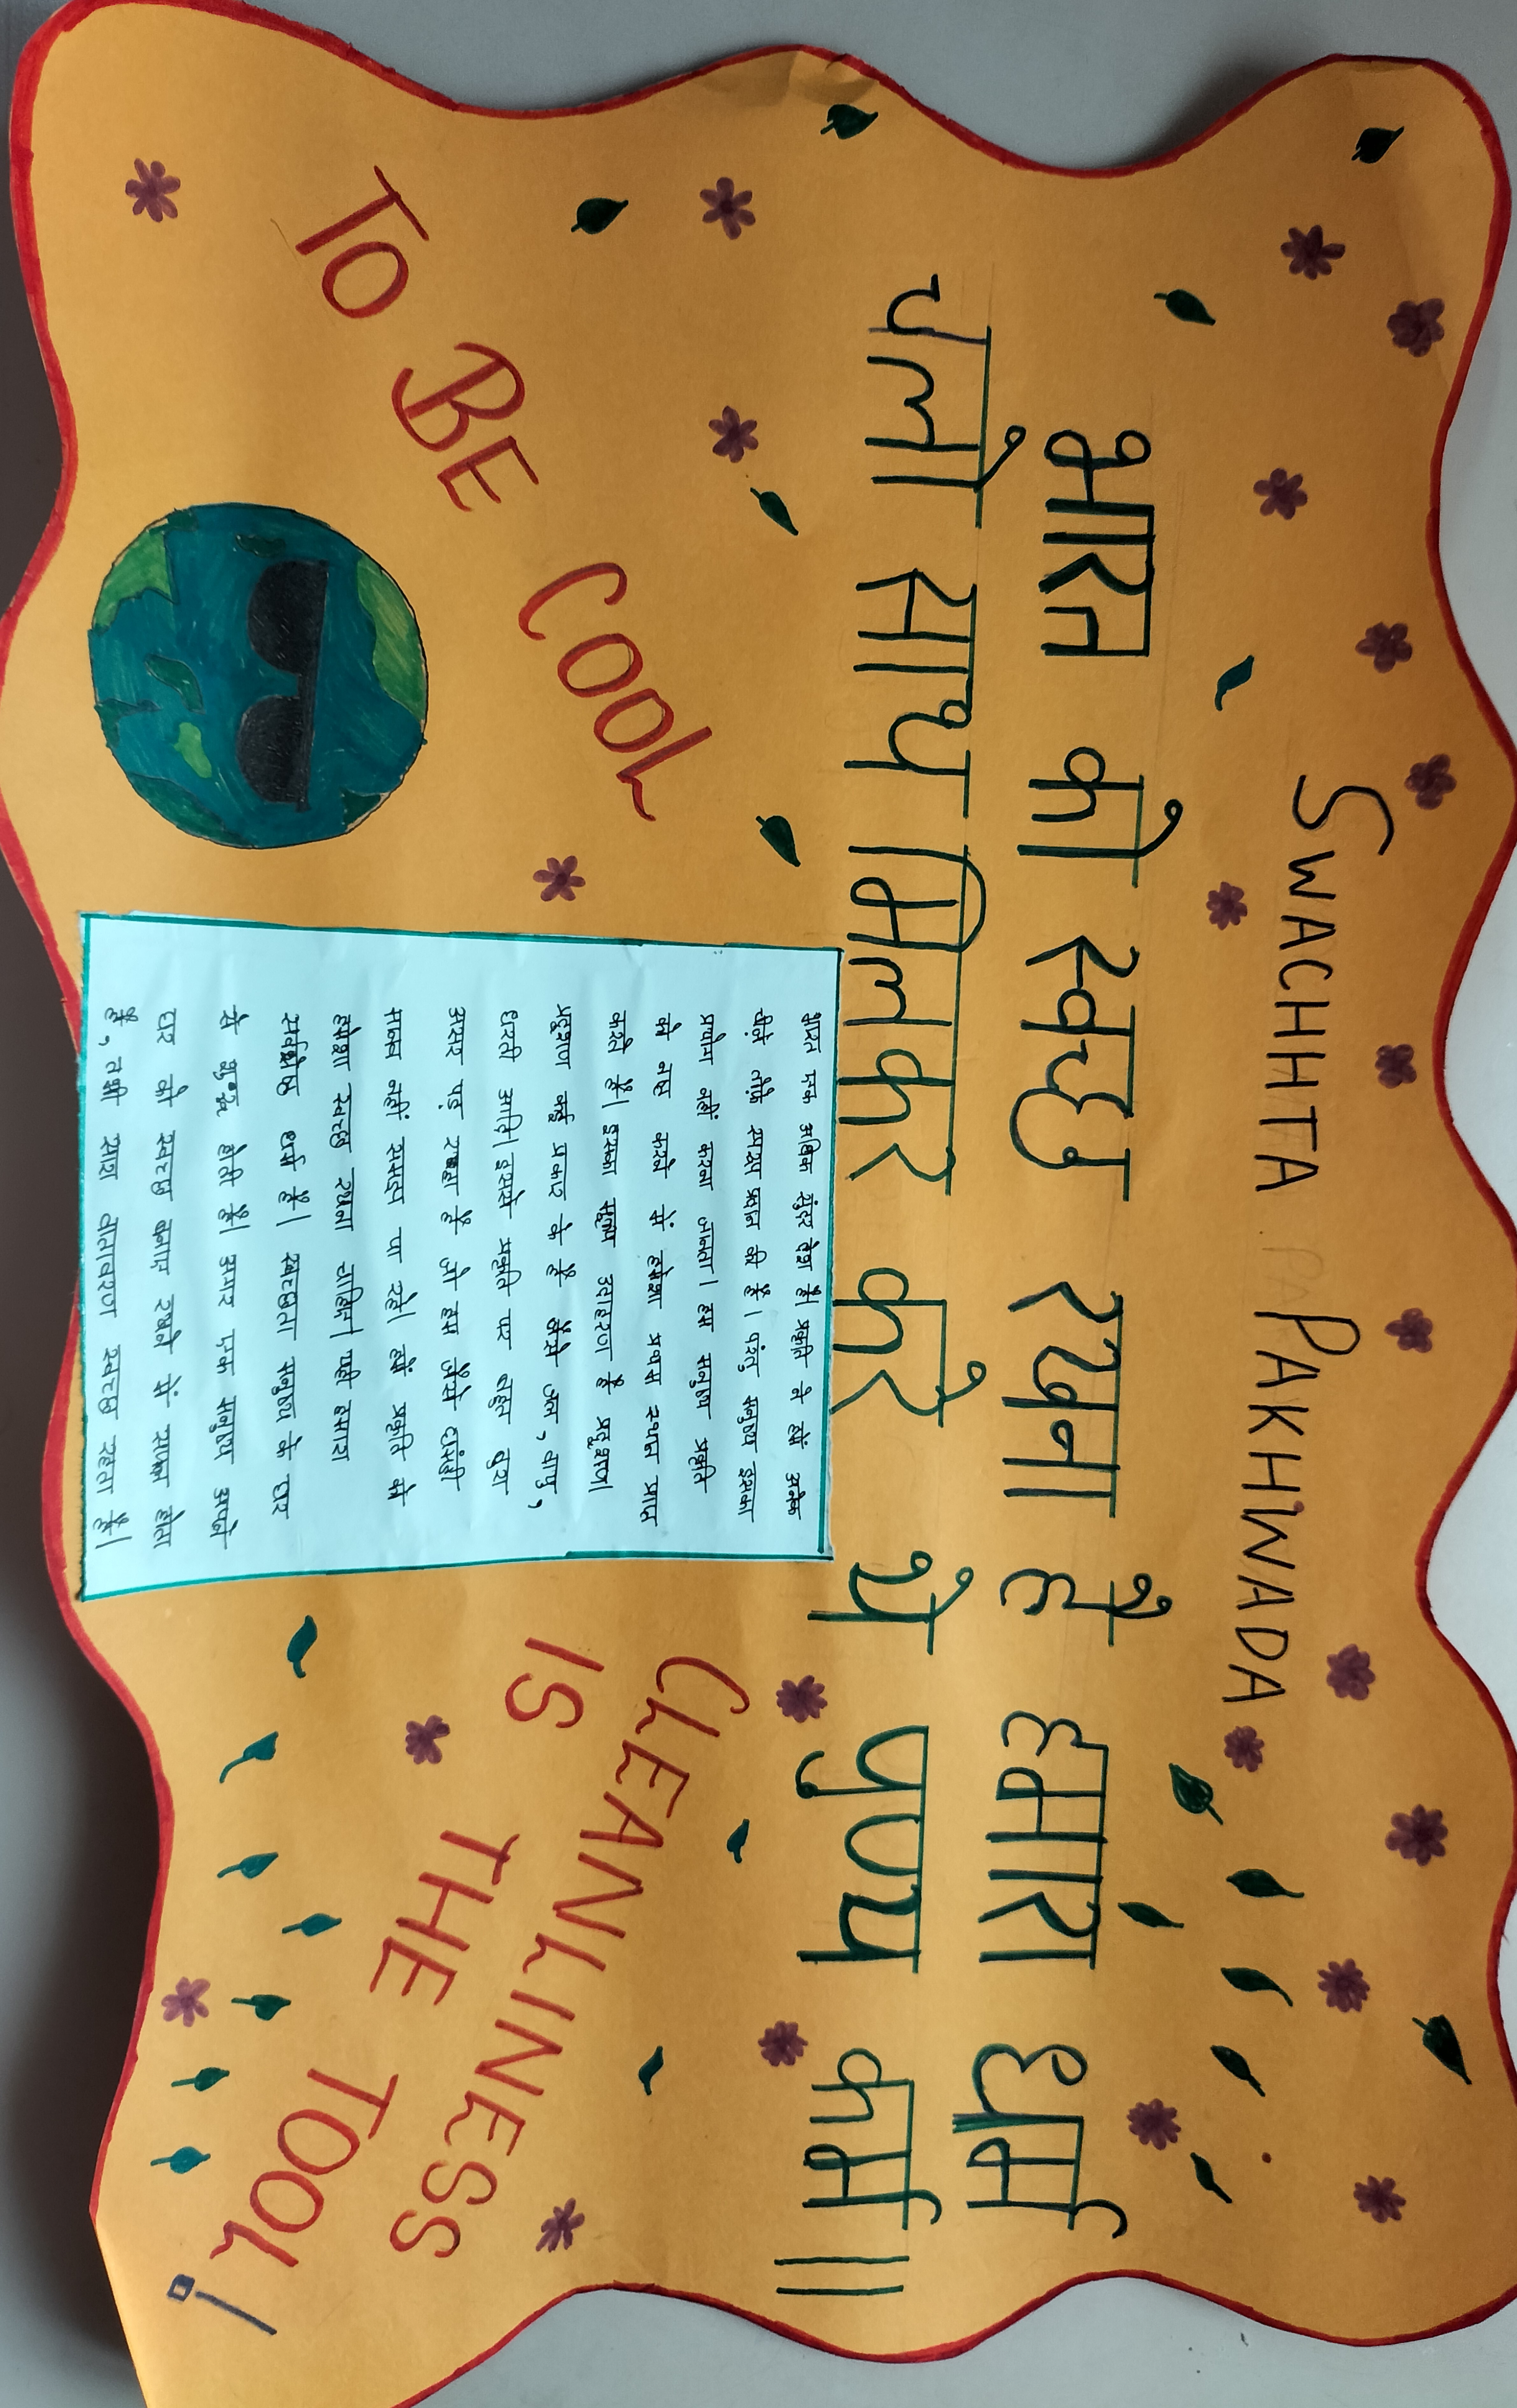 SWACHHTA PAKHWADA
भारत को स्वछ रखना है हमारा धर्म
चलो साथ मिलकर करे ये पुण्य कर्म ||
TO BE COOL
CLEANLINESS
IS THE TOOL!
भारत एक अधिक सुंदर देश है। प्रकृति ने हमें अनेक
चीज़े तौफे स्वरूप प्रदान की है। परंतु मनुष्य इसका
प्रयोग नहीं करना जानता। हम मनुष्य प्रकृति
को नष्ट करने में हमेशा प्रथम स्थान प्राप्त
करते हैं। इसका मुख्य उदाहरण है प्रदूषण।
प्रदूषण कई प्रकार के हैं जैसे जल, वायु,
धरती आदि। इससे प्रकृति पर बहुत बुरा
असर पड़ रहा है जो हम जैसे घमंडी
मानव नहीं समझ पा रहे। हमें प्रकृति को
हमेशा स्वच्छ रखना चाहिए। यही हमारा
सर्वश्रेष्ठ धर्म है। स्वच्छता मनुष्य के घर
से शुरू होती है। अगर एक मनुष्य अपने
घर को स्वच्छ बनाए रखने में सफल होता
है, तभी सारा वातावरण स्वच्छ रहता है।